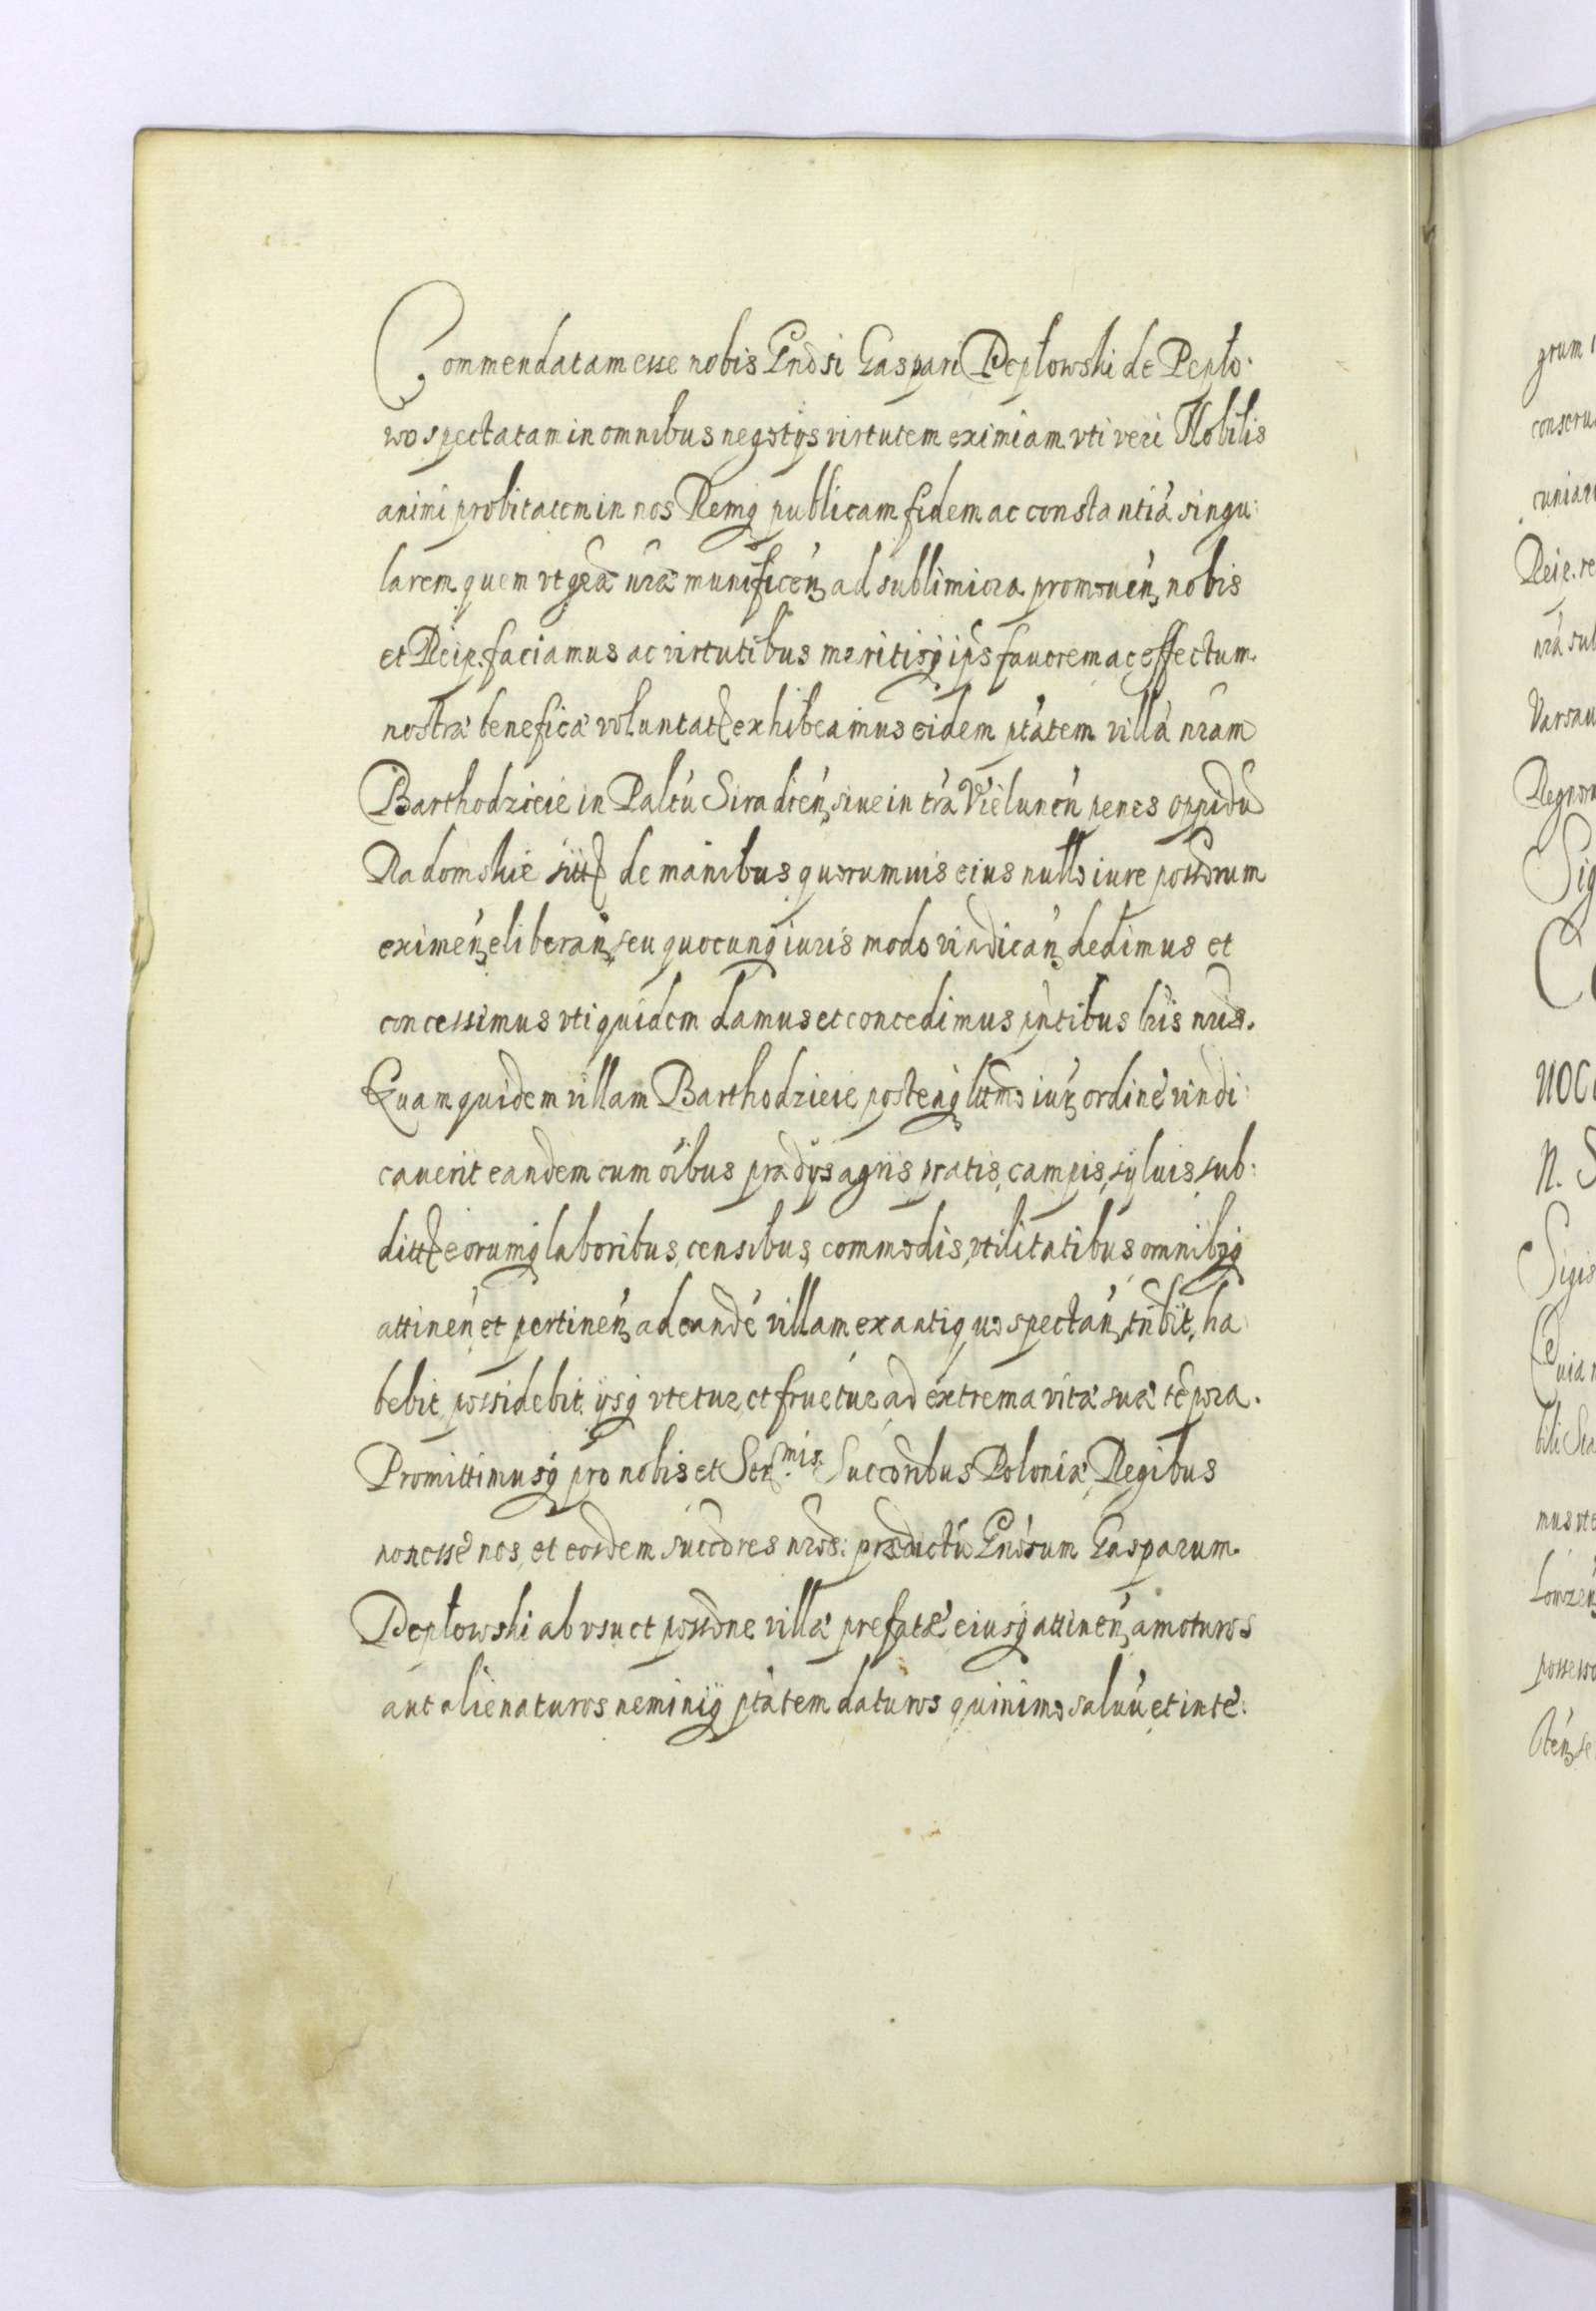 Commendatam esse nobis Gnosi Gaspari Pepłowski de Pepło:
wo spectatam in omnibus negotÿs virtutem eximiam vti veri Nobilis
animi probitatem in nos Remq publicam fidem ac constantiã singu:
larem quem vt grã nrã munificeñ ad sublimiora promoueñ nobis
et Reip. faciamus ac virtutibus meritisq ips fauorem ac effectum
nostræ beneficæ voluntatę exhibeamus eidem ptatem villã nram
Barthodzieie in Paltũ Siradień siue in trã Vieluneñ penes oppidũ
Radomskie sittę de manibus quorumuis eius nullo iure possorum
eximeñ eliberañ seu quocunq iuris modo vindicañ dedimus et
concessimus vti quidem damus et concedimus pntibus lris nris.
Quam quidem villam Barthodzieie posteaq ltimo iur ordine vindi:
cauerit eandem cum oibus prædÿs agris pratis, campis, sÿluis, sub:
dittę eorumq laboribus, censibus, commodis, vtilitatibus omnibusq
attineñ et pertineñ ad eandẽ villam ex antiquo spectań, tnbit, ha
bebit, possidebit, ÿsq vtetur, et fruetur ad extrema vitæ suæ tẽpora.
Promittimusq pro nobis et Ser.mis Succoribus Poloniæ Regibus
non esse nos, et eosdem succores nros: prædictũ Gnosum Gasparum
Pepłowski ab vsu et possone villæ prefatæ eiusq attineñ amoturos
aut alienaturos neminiq ptatem daturos quinimo saluũ et inte: